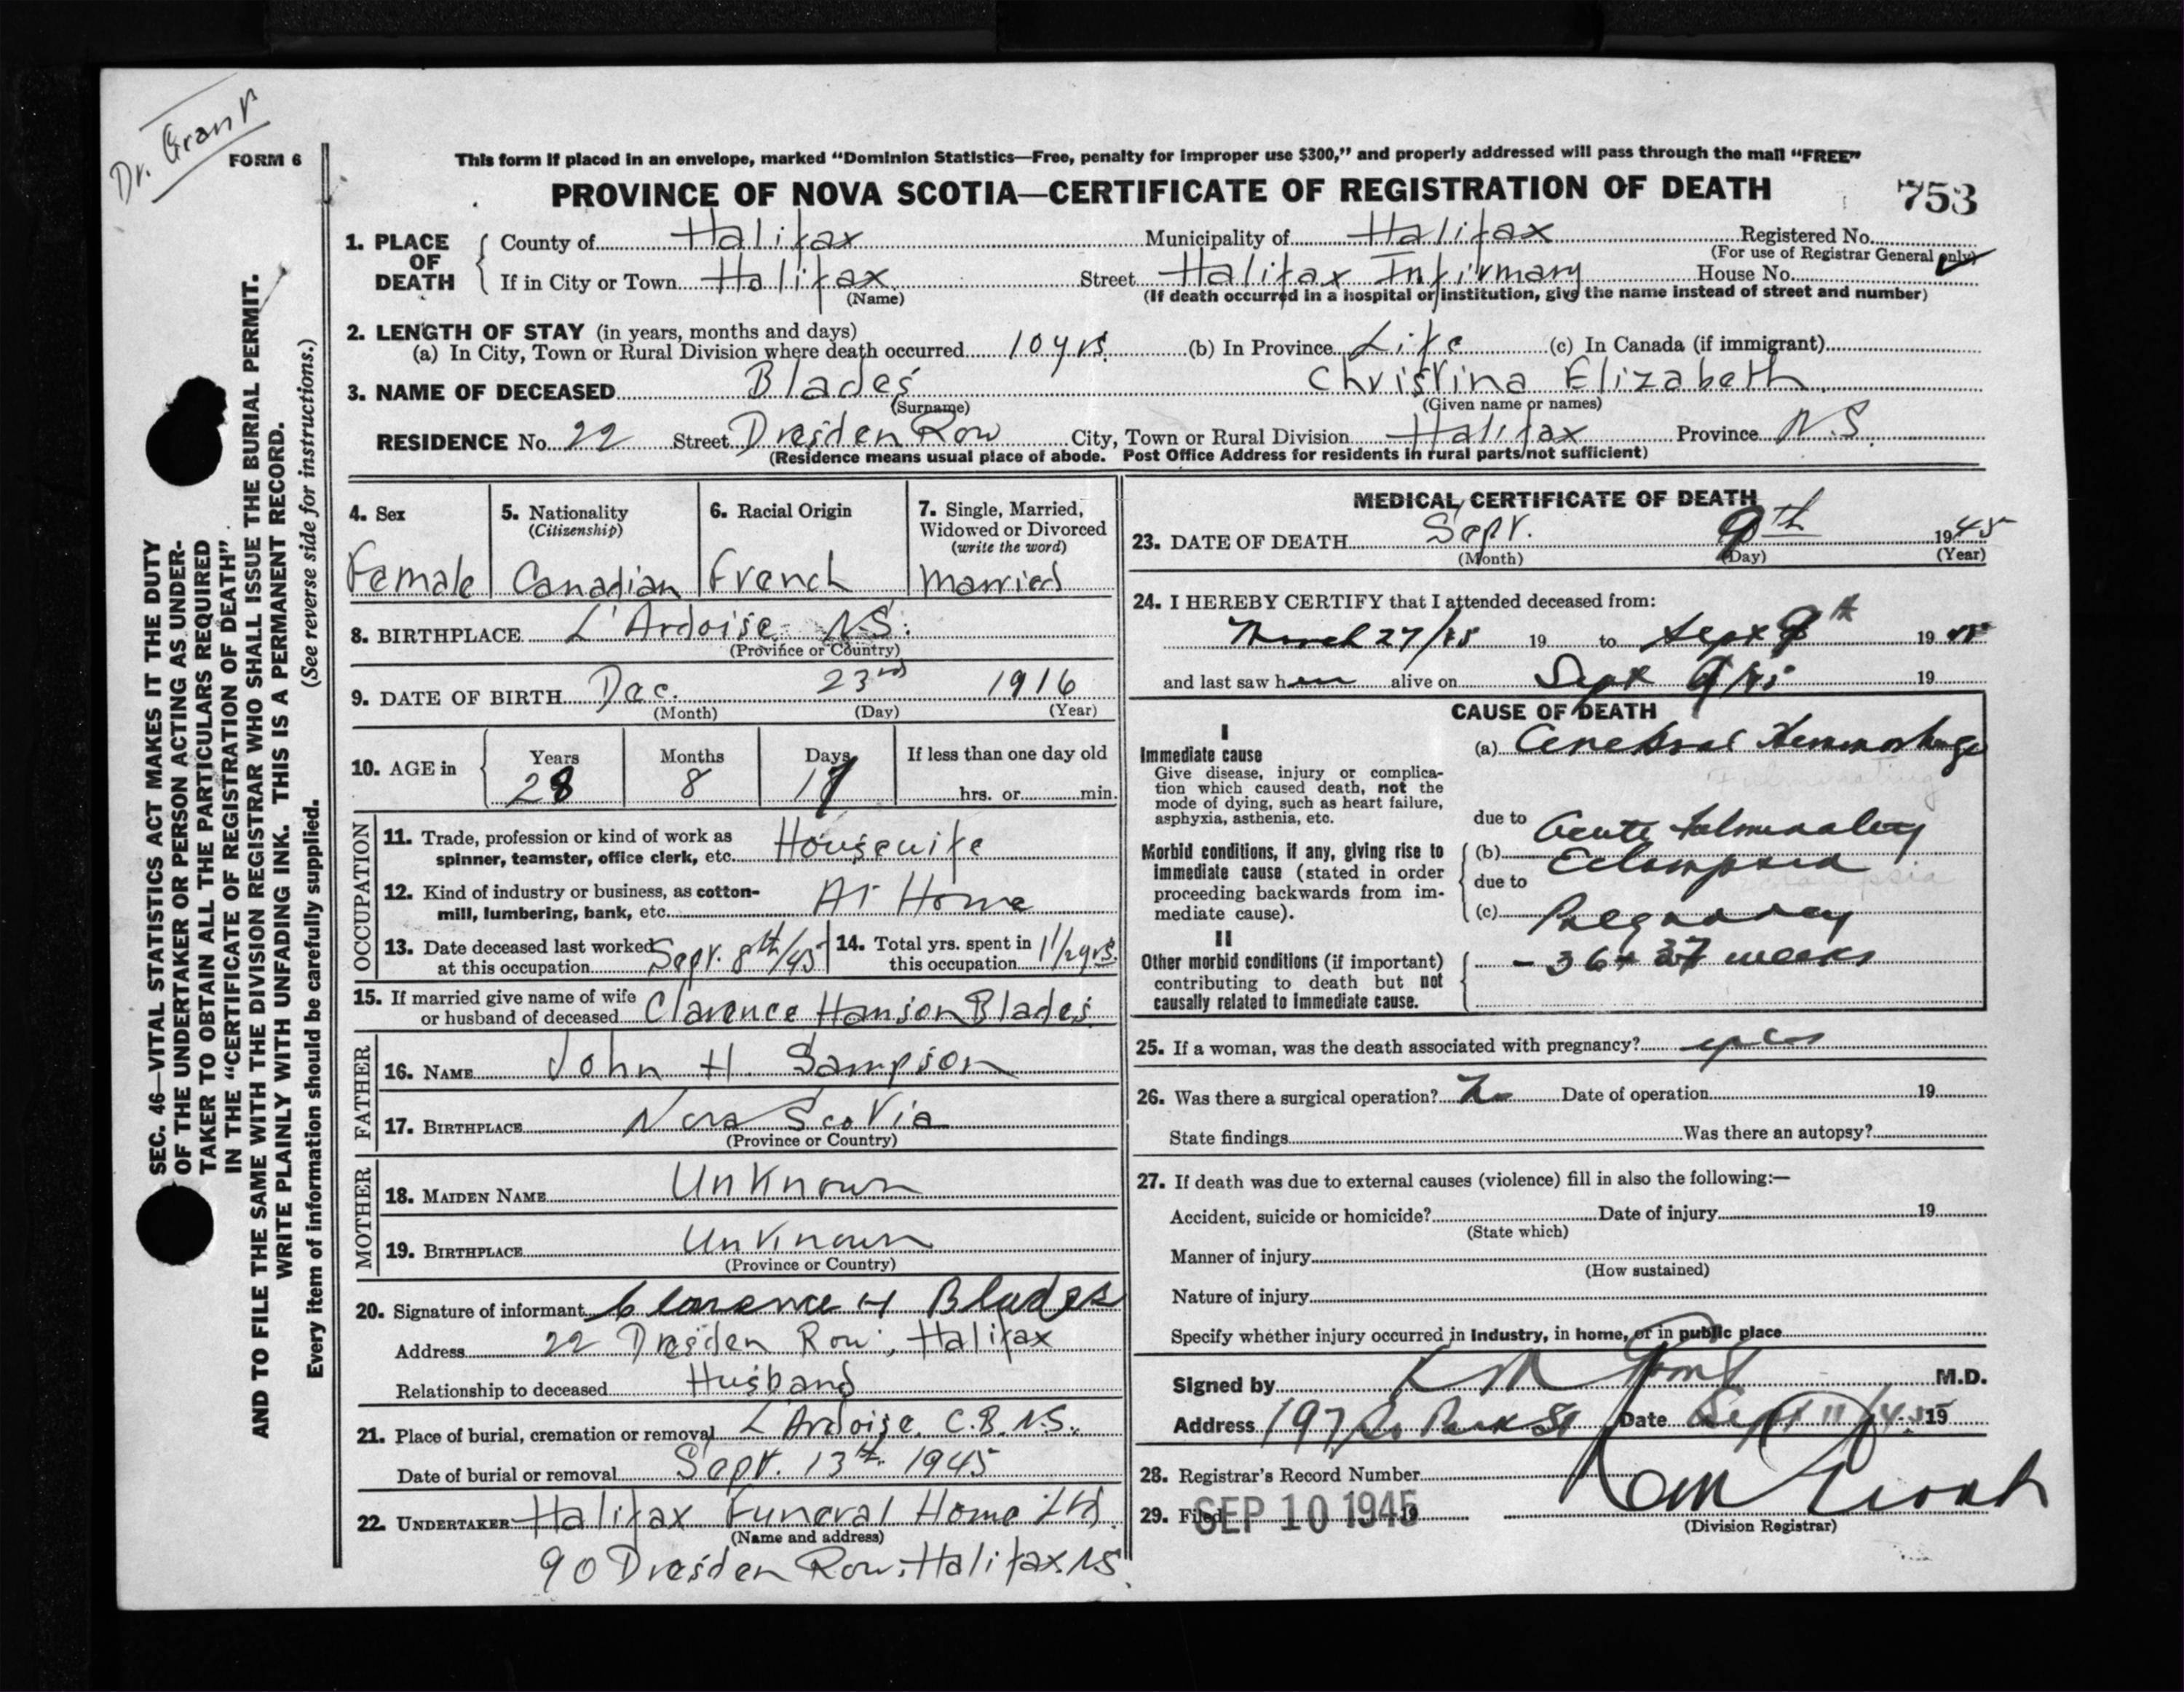 Dr. Grant
FORM 6
This form if placed in an envelope, marked “Dominion Statistics—Free, penalty for improper use $300,” and properly addressed will pass through the mail “FREE”
PROVINCE OF NOVA SCOTIA—CERTIFICATE OF REGISTRATION OF DEATH
753
SEC. 46—VITAL STATISTICS ACT MAKES IT THE DUTY
OF THE UNDERTAKER OR PERSON ACTING AS UNDER-
TAKER TO OBTAIN ALL THE PARTICULARS REQUIRED
IN THE “CERTIFICATE OF REGISTRATION OF DEATH”
AND TO FILE THE SAME WITH THE DIVISION REGISTRAR WHO SHALL ISSUE THE BURIAL PERMIT.
WRITE PLAINLY WITH UNFADING INK. THIS IS A PERMANENT RECORD.
Every item of information should be carefully supplied. (See reverse side for instructions.)
1. PLACE OF DEATH County of Halifax Municipality of Halifax Registered No.
(For use of Registrar General only)
If in City or Town Halifax Street Halifax Infirmary House No.
(Name) (If death occurred in a hospital or institution, give the name instead of street and number)
2. LENGTH OF STAY (in years, months and days)
(a) In City, Town or Rural Division where death occurred 10 yrs. (b) In Province Life (c) In Canada (if immigrant)
3. NAME OF DECEASED Blades Christina Elizabeth
(Surname) (Given name or names)
RESIDENCE No. 22 Street Dresden Row City, Town or Rural Division Halifax Province N.S.
(Residence means usual place of abode. Post Office Address for residents in rural parts not sufficient)
4. Sex
Female
5. Nationality
(Citizenship)
Canadian
6. Racial Origin
French
7. Single, Married,
Widowed or Divorced
(write the word)
Married
8. BIRTHPLACE L'Ardoise N.S.
(Province or Country)
9. DATE OF BIRTH Dec. 23rd 1916
(Month) (Day) (Year)
10. AGE in Years Months Days If less than one day old
28 8 17 hrs. or min.
OCCUPATION
11. Trade, profession or kind of work as
spinner, teamster, office clerk, etc. Housewife
12. Kind of industry or business, as cotton-
mill, lumbering, bank, etc. At Home
13. Date deceased last worked
at this occupation Sept. 8th/45
14. Total yrs. spent in
this occupation 1 1/2 yrs.
15. If married give name of wife
or husband of deceased Clarence Hanson Blades
FATHER
16. NAME John H. Sampson
17. BIRTHPLACE Nova Scotia
(Province or Country)
MOTHER
18. MAIDEN NAME Unknown
19. BIRTHPLACE Unknown
(Province or Country)
20. Signature of informant Clarence H Blades
Address 22 Dresden Row, Halifax
Relationship to deceased Husband
21. Place of burial, cremation or removal L'Ardoise, C.B. N.S.
Date of burial or removal Sept. 13th 1945
22. UNDERTAKER Halifax Funeral Home Ltd.
(Name and address)
90 Dresden Row, Halifax N.S.
MEDICAL CERTIFICATE OF DEATH
23. DATE OF DEATH Sept. 9th 1945
(Month) (Day) (Year)
24. I HEREBY CERTIFY that I attended deceased from:
March 27/45 19 to Sept 9th 1945
and last saw her alive on Sept 9/45 19
CAUSE OF DEATH
I
Immediate cause
Give disease, injury or complica-
tion which caused death, not the
mode of dying, such as heart failure,
asphyxia, asthenia, etc.
(a) Cerebral Hemmorhage
Fulminating
due to Acute fulminating
Morbid conditions, if any, giving rise to
immediate cause (stated in order
proceeding backwards from im-
mediate cause).
(b) Eclampsia
due to eclampsia
(c) Pregnancy
II
Other morbid conditions (if important)
contributing to death but not
causally related to immediate cause.
- 36+ 37 weeks
25. If a woman, was the death associated with pregnancy? yes
26. Was there a surgical operation? No Date of operation 19
State findings Was there an autopsy?
27. If death was due to external causes (violence) fill in also the following:—
Accident, suicide or homicide? Date of injury 19
(State which)
Manner of injury
(How sustained)
Nature of injury
Specify whether injury occurred in industry, in home, or in public place
Signed by K M Grant M.D.
Address 197 So Park St Date Sept 11/45 19
28. Registrar's Record Number
29. Filed SEP 10 1945 19
(Division Registrar)